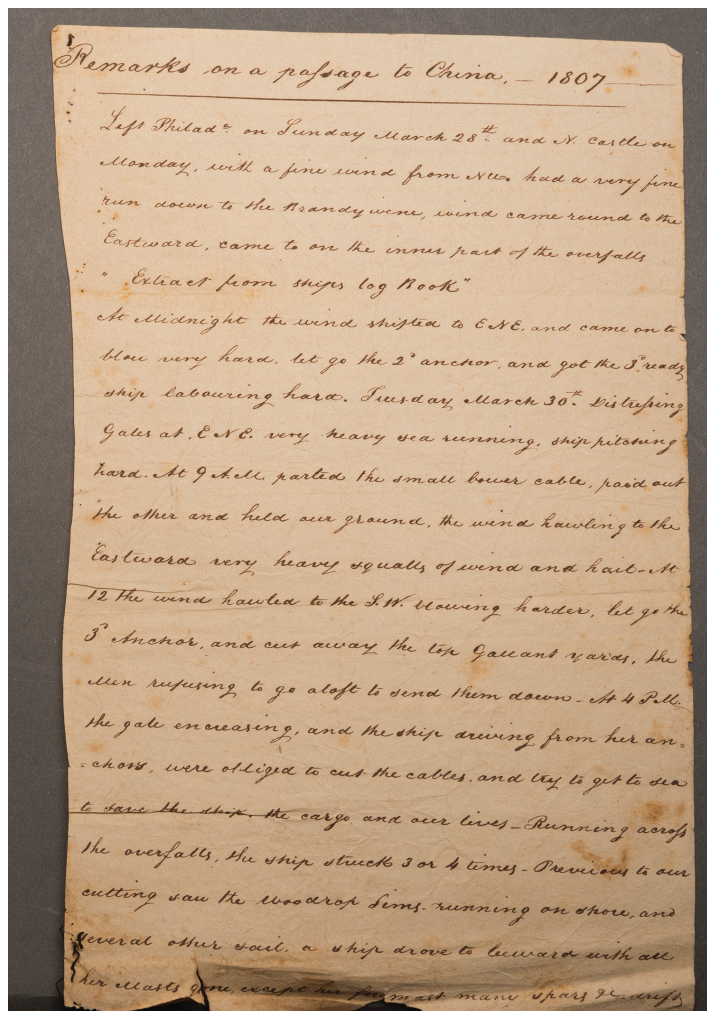 Remarks on a passage to China. — 1807
Left Philada. on Sunday March 28th. and N. Castle on
Monday, with a fine wind from NW. had a very fine
run down to the Brandywine, wind came round to the
Eastward, came to on the inner part of the overfalls
" Extract from ships log Book"
At Midnight the wind shifted to ENE. and came on to
blow very hard. let go the 2d anchor, and got the 3d ready
ship labouring hard. Tuesday March 30th. Distressing
Gales at, ENE. very heavy sea running, ship pitching
hard. At 9 A.M. parted the small bower cable, paid out
the other and held our ground, the wind hawling to the
Eastward very heavy squalls of wind and hail - At
12 the wind hawled to the S.W. blowing harder, let go the
3d Anchor, and cut away the top Gallant yards, the
Men refusing to go aloft to send them down - At 4 P.M.
the gale encreasing, and the ship driving from her an=
=chors, were obliged to cut the cables, and try to get to sea
to save the ship. the cargo and our lives - Running across
the overfalls, the ship struck 3 or 4 times - Previous to our
cutting saw the Woodrop Sims - running on shore, and
several other sail. a ship drove to leeward with all
her Masts gone, except her foremast many spars &c. drift